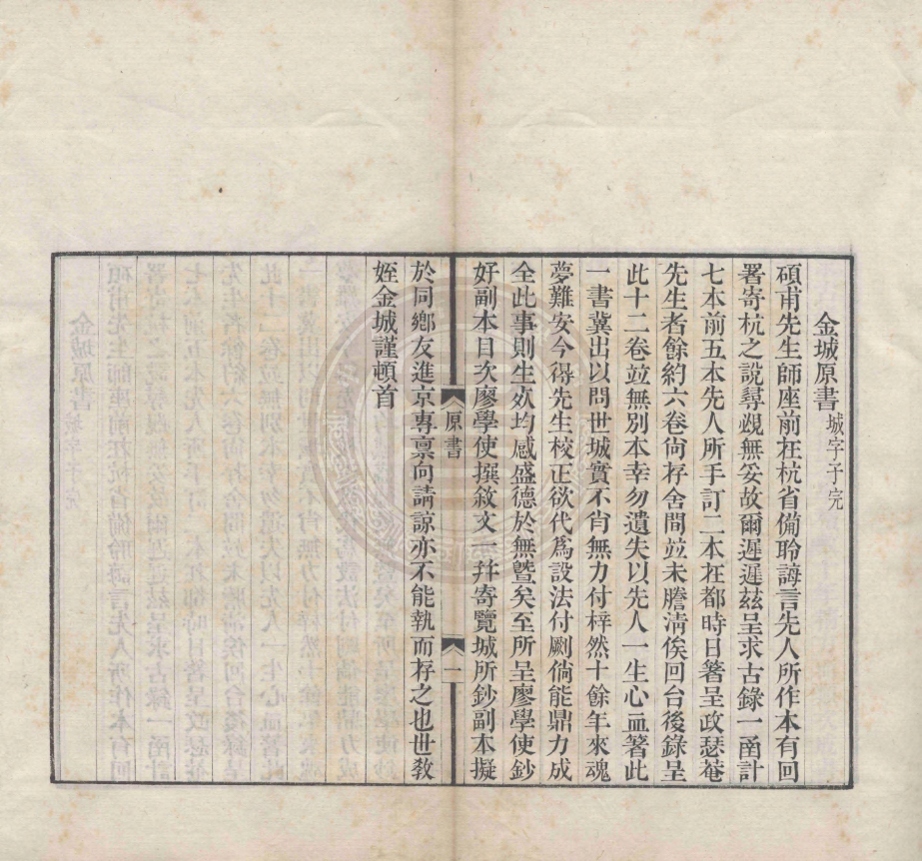 金城原書城字子完
碩甫先生師座前在杭省備聆誨言先人所作本有回
署寄杭之說尋覝無妥故爾遲遲茲呈求古錄一函計
七本前五本先人所手訂二本在都時日箸呈政瑟菴
先生者餘約六卷尙存舍間竝未謄清俟回台後錄呈
此十二卷竝無別本幸勿遺失以先人一生心血箸此
一書冀出以問世城實不肖無力付梓然十餘年來魂
夢難安今得先生校正欲代爲設法付劂倘能鼎力成
全此事則生歿均感盛德於無曁矣至所呈廖學使鈔
好副本目次廖學使撰敘文一幷寄覽城所鈔副本擬
於同鄉友進京專稟向請諒亦不能執而存之也世敎
姪金城謹頓首
原書
一